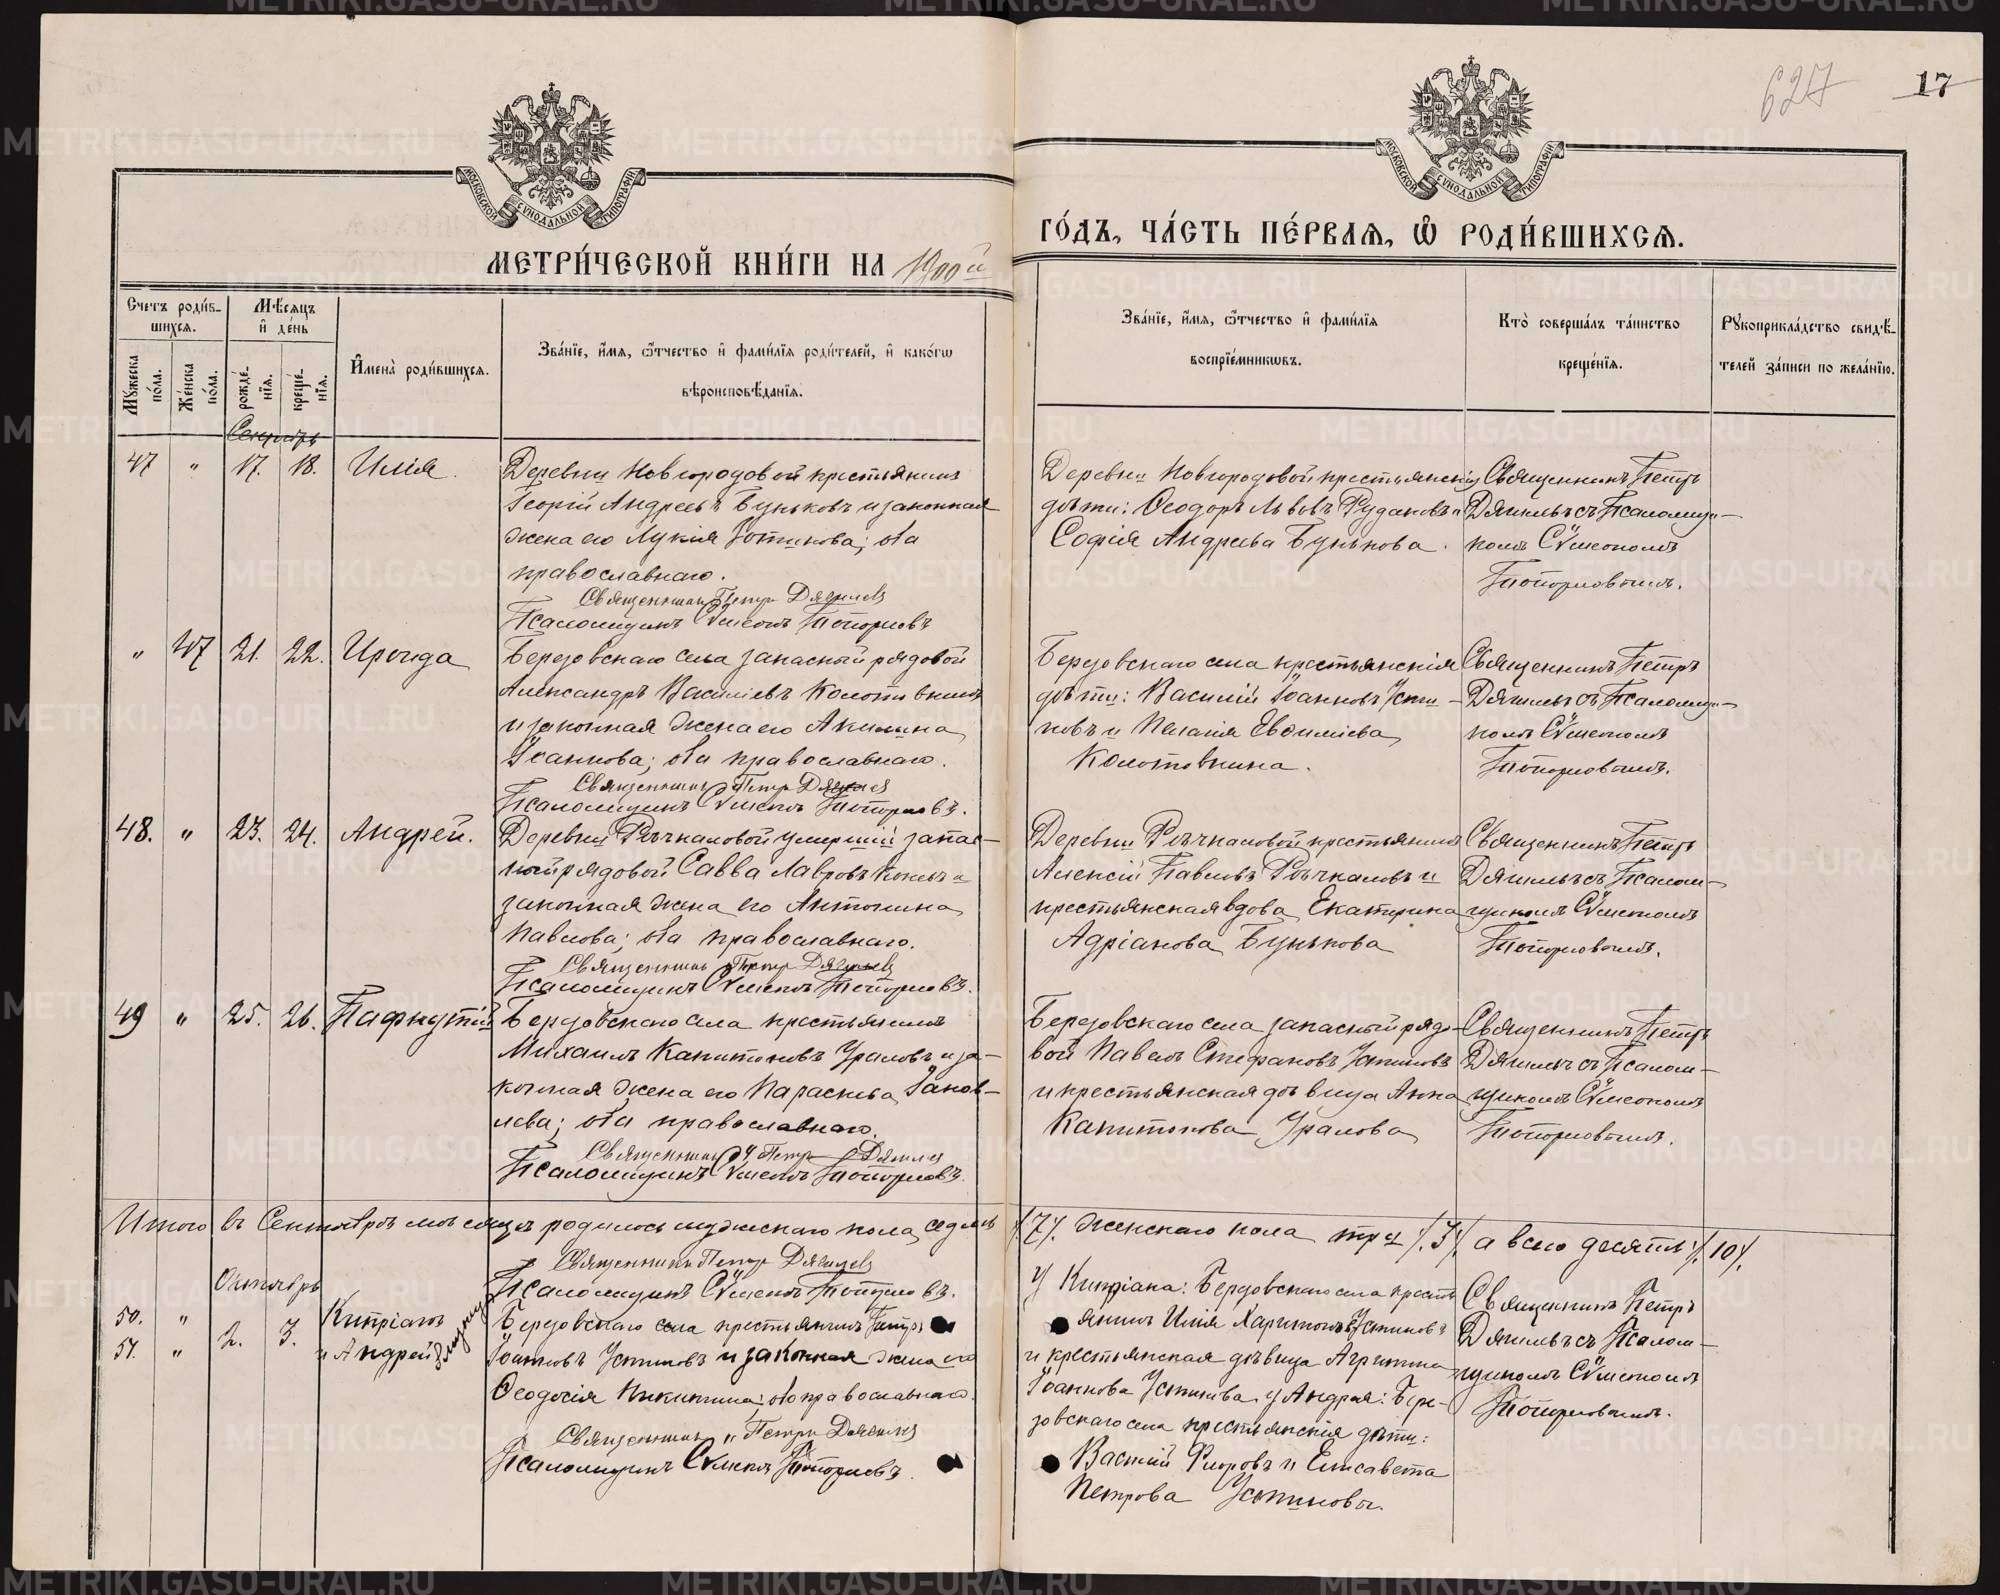 627
17
МОСКОВСКОЙ СѴНОДАЛЬНОЙ ТИПОГРАФІИ
МОСКОВСКОЙ СѴНОДАЛЬНОЙ ТИПОГРАФІИ
МЕТРИ́ЧЕСКОЙ КНИ́ГИ НА 1900й
ГО́ДЪ, ЧА́СТЬ ПЕ́РВАѦ, Ѿ РОДИ́ВШИХСѦ.
Счетъ роди́вшихсѧ.
Мꙋ́жеска по́ла.
Же́нска по́ла.
Мѣ́сѧцъ и҆ де́нь
рожде́нїѧ.
креще́нїѧ.
И҆мена̀ роди́вшихсѧ.
Зва́нїе, и҆́мѧ, ѻ҆́тчество и҆ фами́лїѧ роди́телей, и҆ како́гѡ
вѣроисповѣ́данїѧ.
Зва́нїе, и҆́мѧ, ѻ҆́тчество и҆ фами́лїѧ
воспрїе́мникѡвъ.
Кто̀ соверша́лъ та́инство
креще́нїѧ.
Рꙋкоприкла́дство свидѣ́-
телей за́писи по жела́нїю.
Сентябрь
47 " 17. 18. Илія.
Деревни Новгородовой крестьянинъ
Георгій Андреевъ Буньковъ и законная
жена его Лукія Фотинова; оба
православнаго.
Священникъ Петръ Дягилевъ
Псаломщикъ Сѵмеонъ Топорковъ
Деревни Новгородовой крестьянскіе
дѣти: Ѳеодоръ Львовъ Рудаковъ и
Софія Андреева Бунькова.
Священникъ Петръ
Дягилевъ съ Псаломщи-
комъ Сѵмеономъ
Топорковымъ.
" 47 21. 22. Ираида
Березовскаго села запасный рядовой
Александръ Василіевъ Колотовкинъ
и законная жена его Акилина
Іоаннова; оба православнаго.
Священникъ Петръ Дягилевъ
Псаломщикъ Сѵмеонъ Топорковъ.
Березовскаго села крестьянскія
дѣти: Василій Іоанновъ Усти-
новъ и Пелагія Евѳиміева
Колотовкина.
Священникъ Петръ
Дягилевъ съ Псаломщи-
комъ Сѵмеономъ
Топорковымъ.
48. " 23. 24. Андрей.
Деревни Рычковой умершій запас-
ной рядовой Савва Лавровъ и
законная жена его Антонина
Павлова; оба православнаго.
Священникъ Петръ Дягилевъ
Псаломщикъ Сѵмеонъ Топорковъ.
Деревни крестьянинъ
Алексій Павловъ и
крестьянская вдова Екатерина
Адріанова Бунькова
Священникъ Петръ
Дягилевъ съ Псалом-
щикомъ Сѵмеономъ
Топорковымъ.
49 " 25. 26. Пафнутій
Березовскаго села крестьянинъ
Михаилъ Капитоновъ Ураловъ и за-
конная жена его Параскева Іаков-
лева; оба православнаго.
Священникъ Петръ Дягилевъ
Псаломщикъ Сѵмеонъ Топорковъ.
Березовскаго села запасный рядо-
вой Павелъ Стефановъ Устиновъ
и крестьянская дѣвица Анна
Капитонова Уралова
Священникъ Петръ
Дягилевъ съ Псалом-
щикомъ Сѵмеономъ
Топорковымъ.
Итого въ Сентябрѣ мѣсяцѣ родилось мужескаго пола седмь /7/. женскаго пола три /3/ а всего десять /10/.
Священникъ Петръ Дягилевъ
Псаломщикъ Сѵмеонъ Топорковъ.
Октябрь
50. "
51. " 2. 3.
Кипріанъ
и Андрей близнецы
Березовскаго села крестьянинъ Петръ
Іоанновъ Устиновъ и законная жена его
Ѳеодосія Никитина; оба православнаго.
Священникъ Петръ Дягилевъ
Псаломщикъ Сѵмеонъ Топорковъ.
У Кипріана: Березовскаго села кресть
янинъ Илія Харитоновъ Устиновъ
и крестьянская дѣвица Агриппина
Іоаннова Устинова, у Андрея: Бере-
зовскаго села крестьянскія дѣти:
Василій Флоровъ и Елисавета
Петрова Устиновы.
Священникъ Петръ
Дягилевъ съ Псалом-
щикомъ Сѵмеономъ
Топорковымъ.
METRIKI.GASO-URAL.RU